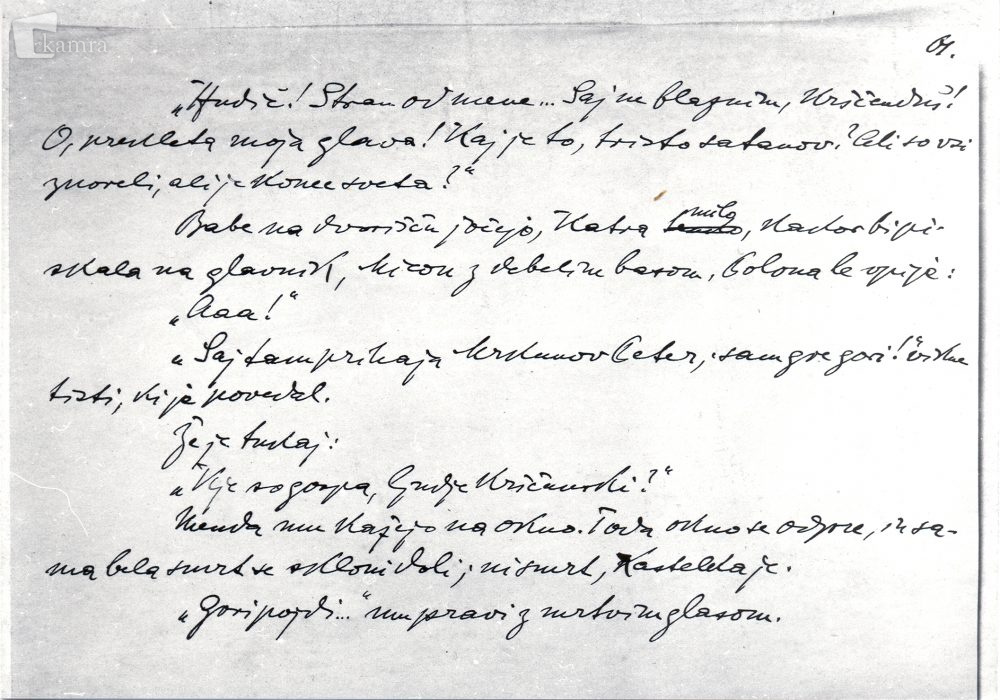 kamra
61.
„Hudič! Stran od mene... Saj ne blaznim, Krščenduš!
O, prekleta moja glava! Kaj je to, tristo satanov? Ali so vsi
znoreli, ali je konec sveta?“
Babe na dvorišču jočejo, Katra mila, kakor bi pi-
skala na glavnik, Micon z debelim basom, Colona le vpije:
„Aaa!“
„Saj tam prihaja Mrkunov Peter, sam gre gori!“ vikne
tisti, ki je povedal.
Že je tukaj:
„Kje so gospa, ljudje krščanski?“
Menda mu kažejo na okno. Toda okno se odpre, in sa-
ma bela smrt se skloni doli; ni smrt, Kasteletka je.
„Gori pojdi...“ mu pravi z mrtvim glasom.